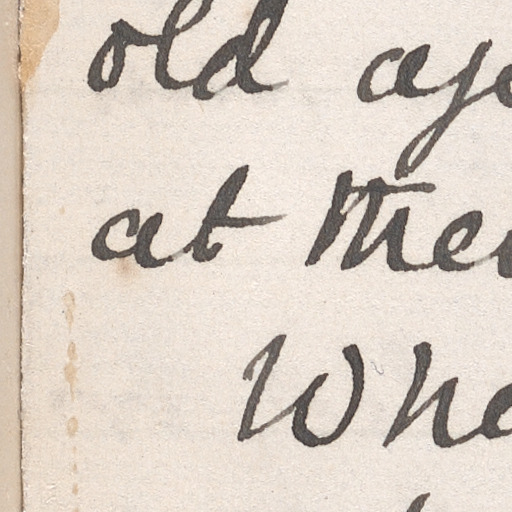 old age
at thei
Whe